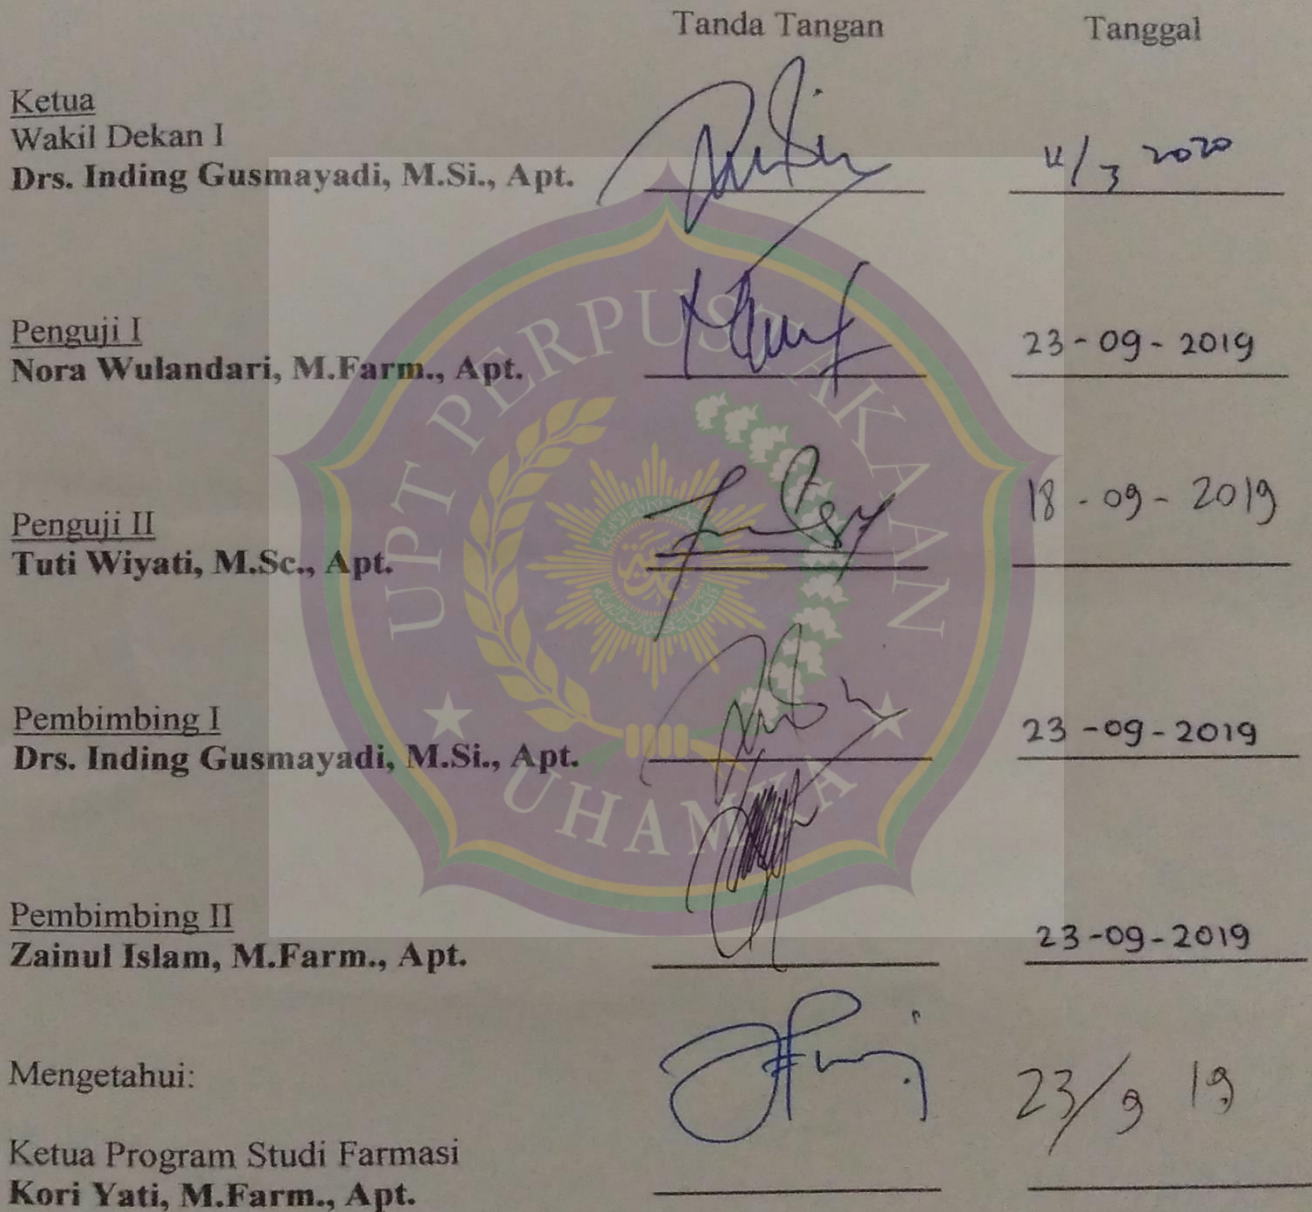 Tanda Tangan Tanggal
Ketua
Wakil Dekan I
Drs. Inding Gusmayadi, M.Si., Apt. 2020
Penguji I
Nora Wulandari, M.Farm., Apt. 23-09-2019
Penguji II 18-09-2019
Tuti Wiyati, M.Sc., Apt.
Pembimbing I
Drs. Inding Gusmayadi, M.Si., Apt. 23-09-2019
Pembimbing II
Zainul Islam, M.Farm., Apt. 23-09-2019
Mengetahui: 23/9 19
Ketua Program Studi Farmasi
Kori Yati, M.Farm., Apt.
UPT PERPUSTAKAAN
UHAMKA